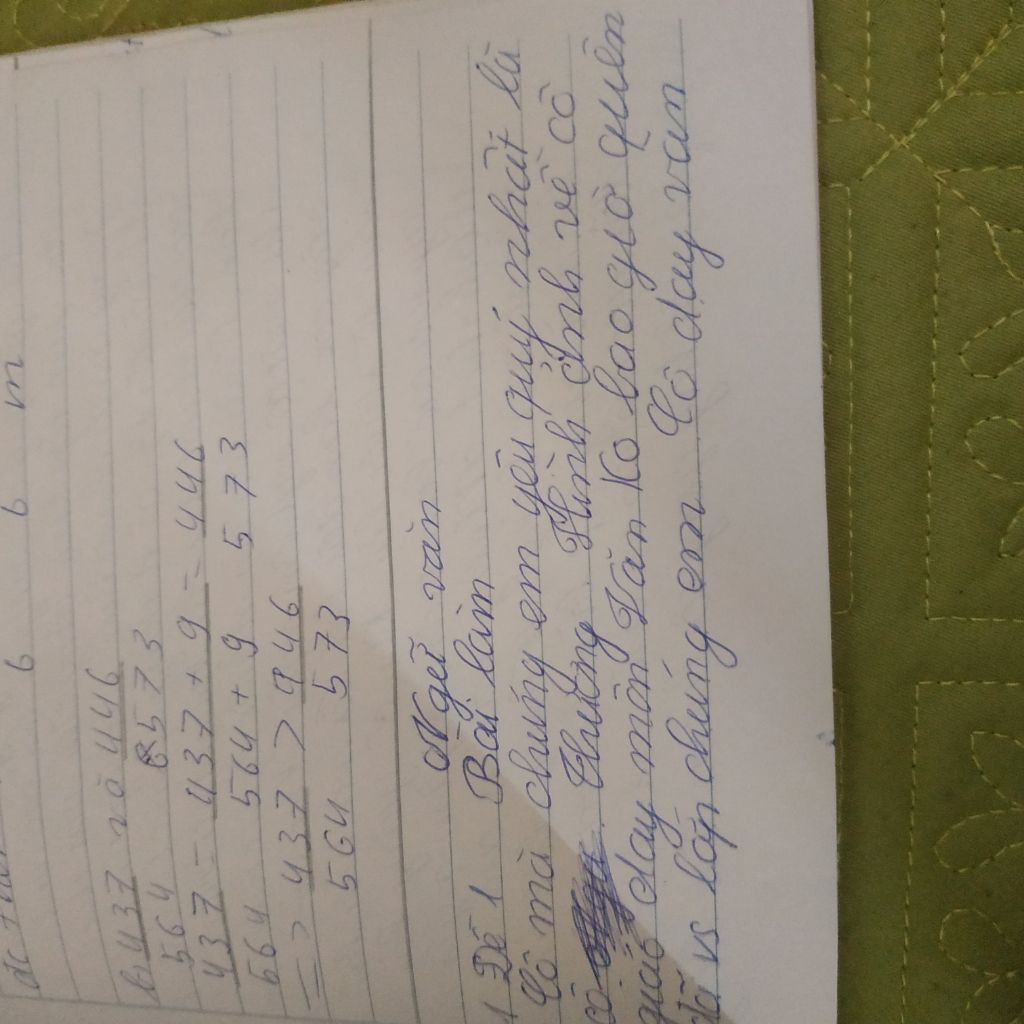 b 437 và 446
564 573
437 = 437 + 9 = 446
564 564 + 9 573
=> 437 > 946
564 573
Ngữ văn
1 Đề 1 Bài làm
Cô mà chúng em yêu quý nhất là
cô Thương. Hình ảnh về cô
giáo dạy môn Văn Ko bao giờ quên
vs lớp chúng em Cô dạy văn